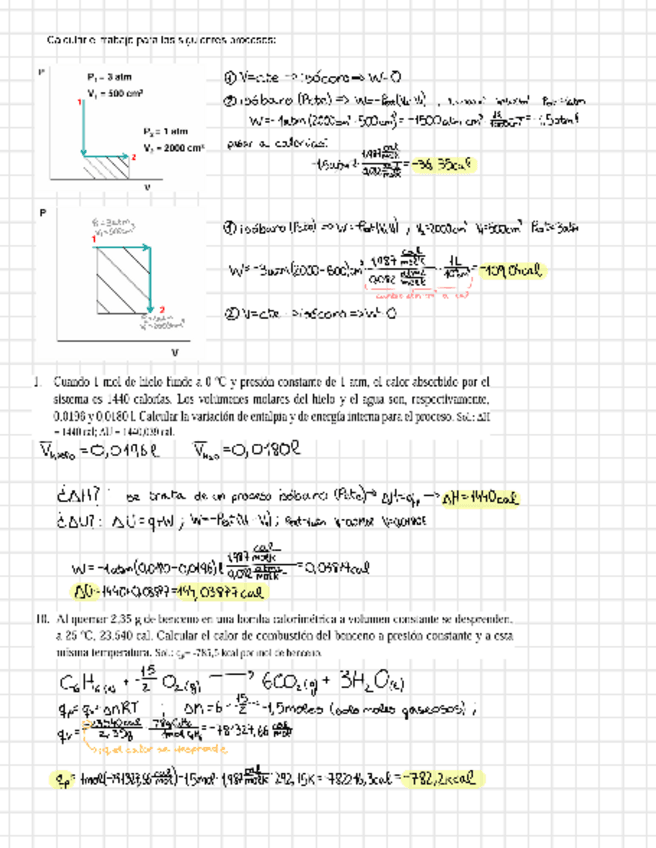 Calcular el trabajo para los siguientes procesos:
P
P₁ = 3 atm
V₁ = 500 cm³
1
P₂ = 1 atm
V₂ = 2000 cm³
2
V
① V=cte → isócoro → W=0
② isóbaro (Pcte) ⇒ W=-Pext(V₂-V₁)
W=-1atm(2000cm³-500cm³)=-1500atm cm³
pasar a calorías:
-1,5atm l · 1,987 cal/molK / 0,082 atm l/molK = -36,35cal
P
P₁=3atm
V₁=500cm³
1
2
V₂=2000cm³
V
① isóbaro (Pcte) ⇒ W=-Pext(V₂-V₁) , V₂=2000cm³ V₁=500cm³ Pext=3atm
W=-3atm(2000-500)cm³ · 1,987 cal/molK / 0,082 atm l/molK · 1L/10³cm³ = -109,04cal
② V=cte → isócoro ⇒ W=0
1. Cuando 1 mol de hielo funde a 0 ºC y presión constante de 1 atm, el calor absorbido por el
sistema es 1440 calorías. Los volúmenes molares del hielo y el agua son, respectivamente,
0,0196 y 0,0180 l. Calcular la variación de entalpia y de energía interna para el proceso. Sol.: ΔH
= 1440 cal; ΔU = 1440,039 cal.
V̅hielo =0,0196l V̅H₂O =0,0180l
¿ΔH?: se trata de un proceso isóbaro (Pcte) → ΔH=qp → ΔH=1440cal
¿ΔU?: ΔU=q+W ; W=-Pext(V₂-V₁) ;
W=-1atm(0,0180-0,0196)l · 1,987 cal/molK / 0,082 atm l/molK =0,03877cal
ΔU=1440+0,03877=1440,03877cal
10. Al quemar 2,35 g de benceno en una bomba calorimétrica a volumen constante se desprenden,
a 25 ºC, 23.540 cal. Calcular el calor de combustión del benceno a presión constante y a esta
misma temperatura. Sol.: qp= -782,5 kcal por mol de benceno.
C₆H₆(l) + 15/2 O₂(g) → 6CO₂(g) + 3H₂O(l)
qp=qv+ΔnRT ; Δn=6-15/2=-1,5moles (solo moles gaseosos) ;
qv=-23540cal/2,35g · 78gC₆H₆/1mol C₆H₆=-781327,66 cal/mol
el calor se desprende
qp=1mol(-781327,66 cal/mol)-1,5mol·1,987 cal/molK · 298,15K=-782216,3cal=-782,2kcal